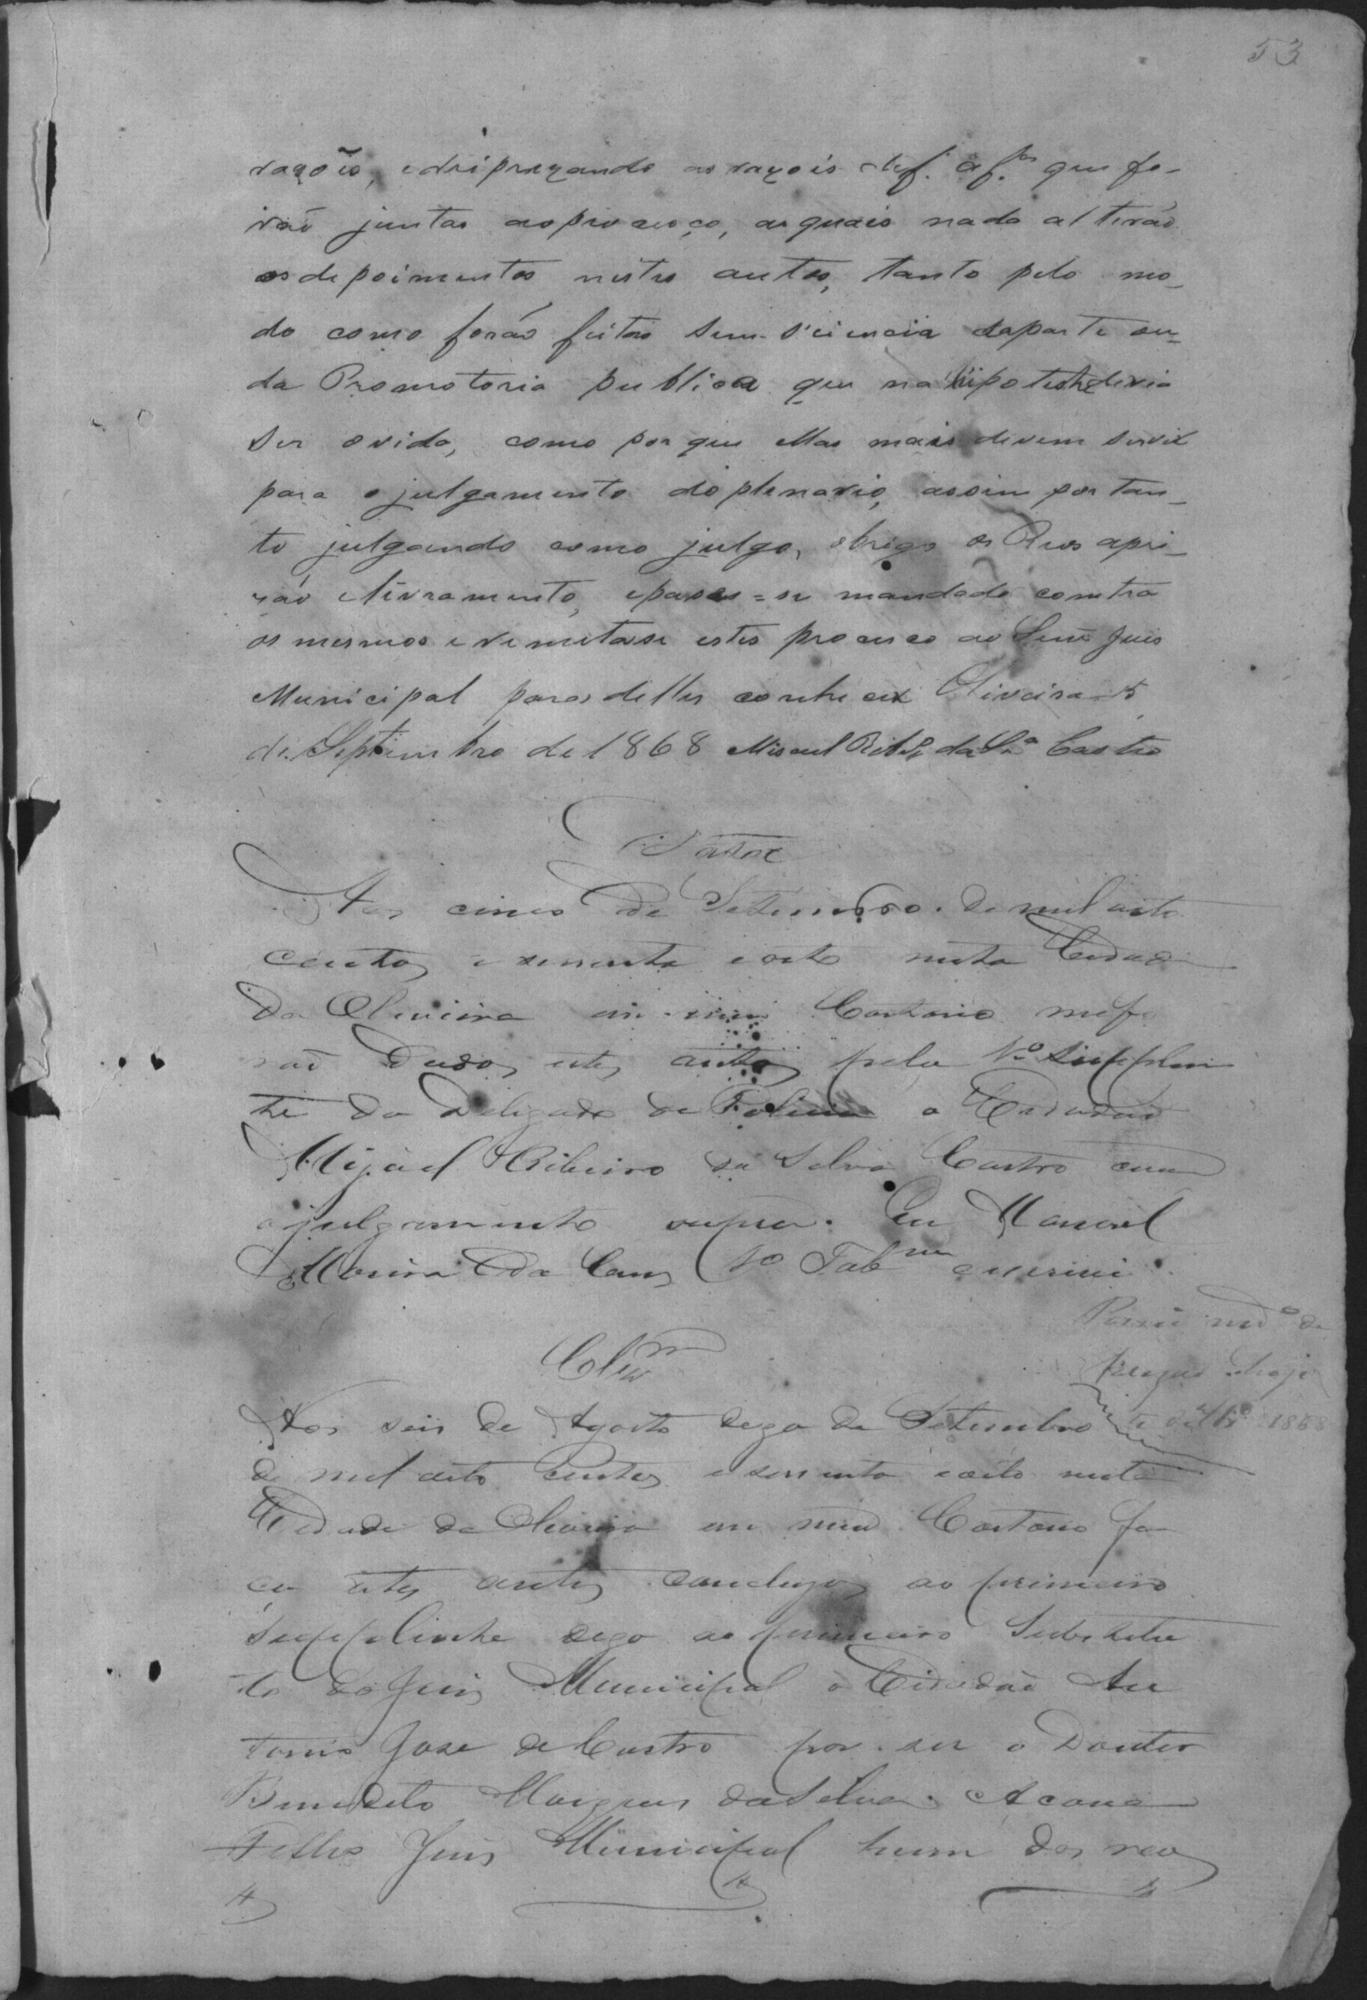 53
rações, e despresando as rasois de f. a f. que fo-
rão juntas ao processo, as quais nada alterão
os depoimentos nestes autos, tanto pelo mo-
do como forão feitas sem siencia da parte ou
da Promotoria publica que na hipotese devia
ser ovida, como por que ellas mais devem servir
para o julgamento do plenario, assim por tan-
to julgando como julgo, obrigo os Reos a pri-
zão e livramento, e passe-se mandado contra
os mesmos e remetase estes processo ao Senr Juis
Municipal para delles conhecer Oliveira 5
de Septembro de 1868 Misael Ribr.o da S.a Castro
Data
Aos cinco de Setembro de mil oito
centos e secenta e oito nesta Cidade
da Oliveira em meu Cartorio me fo
rão dados estes autos pelo 1º Supplen
te do Delegado de Policia o Cidadão
Mizael Ribeiro da Silva Castro com
o julgamento supra. Eu Manoel
Moreira da 1º Tab.am escrevi
Passei md.o de
hoje
1868
Clsm
Aos seis de Agosto digo de Setembro
de mil oito centos e sessenta e oito nesta
Cidade da Oliveira em meu Cartorio fa
ço estes autos concluzos ao primeiro
Supplente digo ao primeiro Substitu
to do Juis Municipal o Cidadão An
tonio Jose de Castro por ser o Doutor
Benedito Marques da Silva Acauã
Filho Juis Municipal hum dos reos